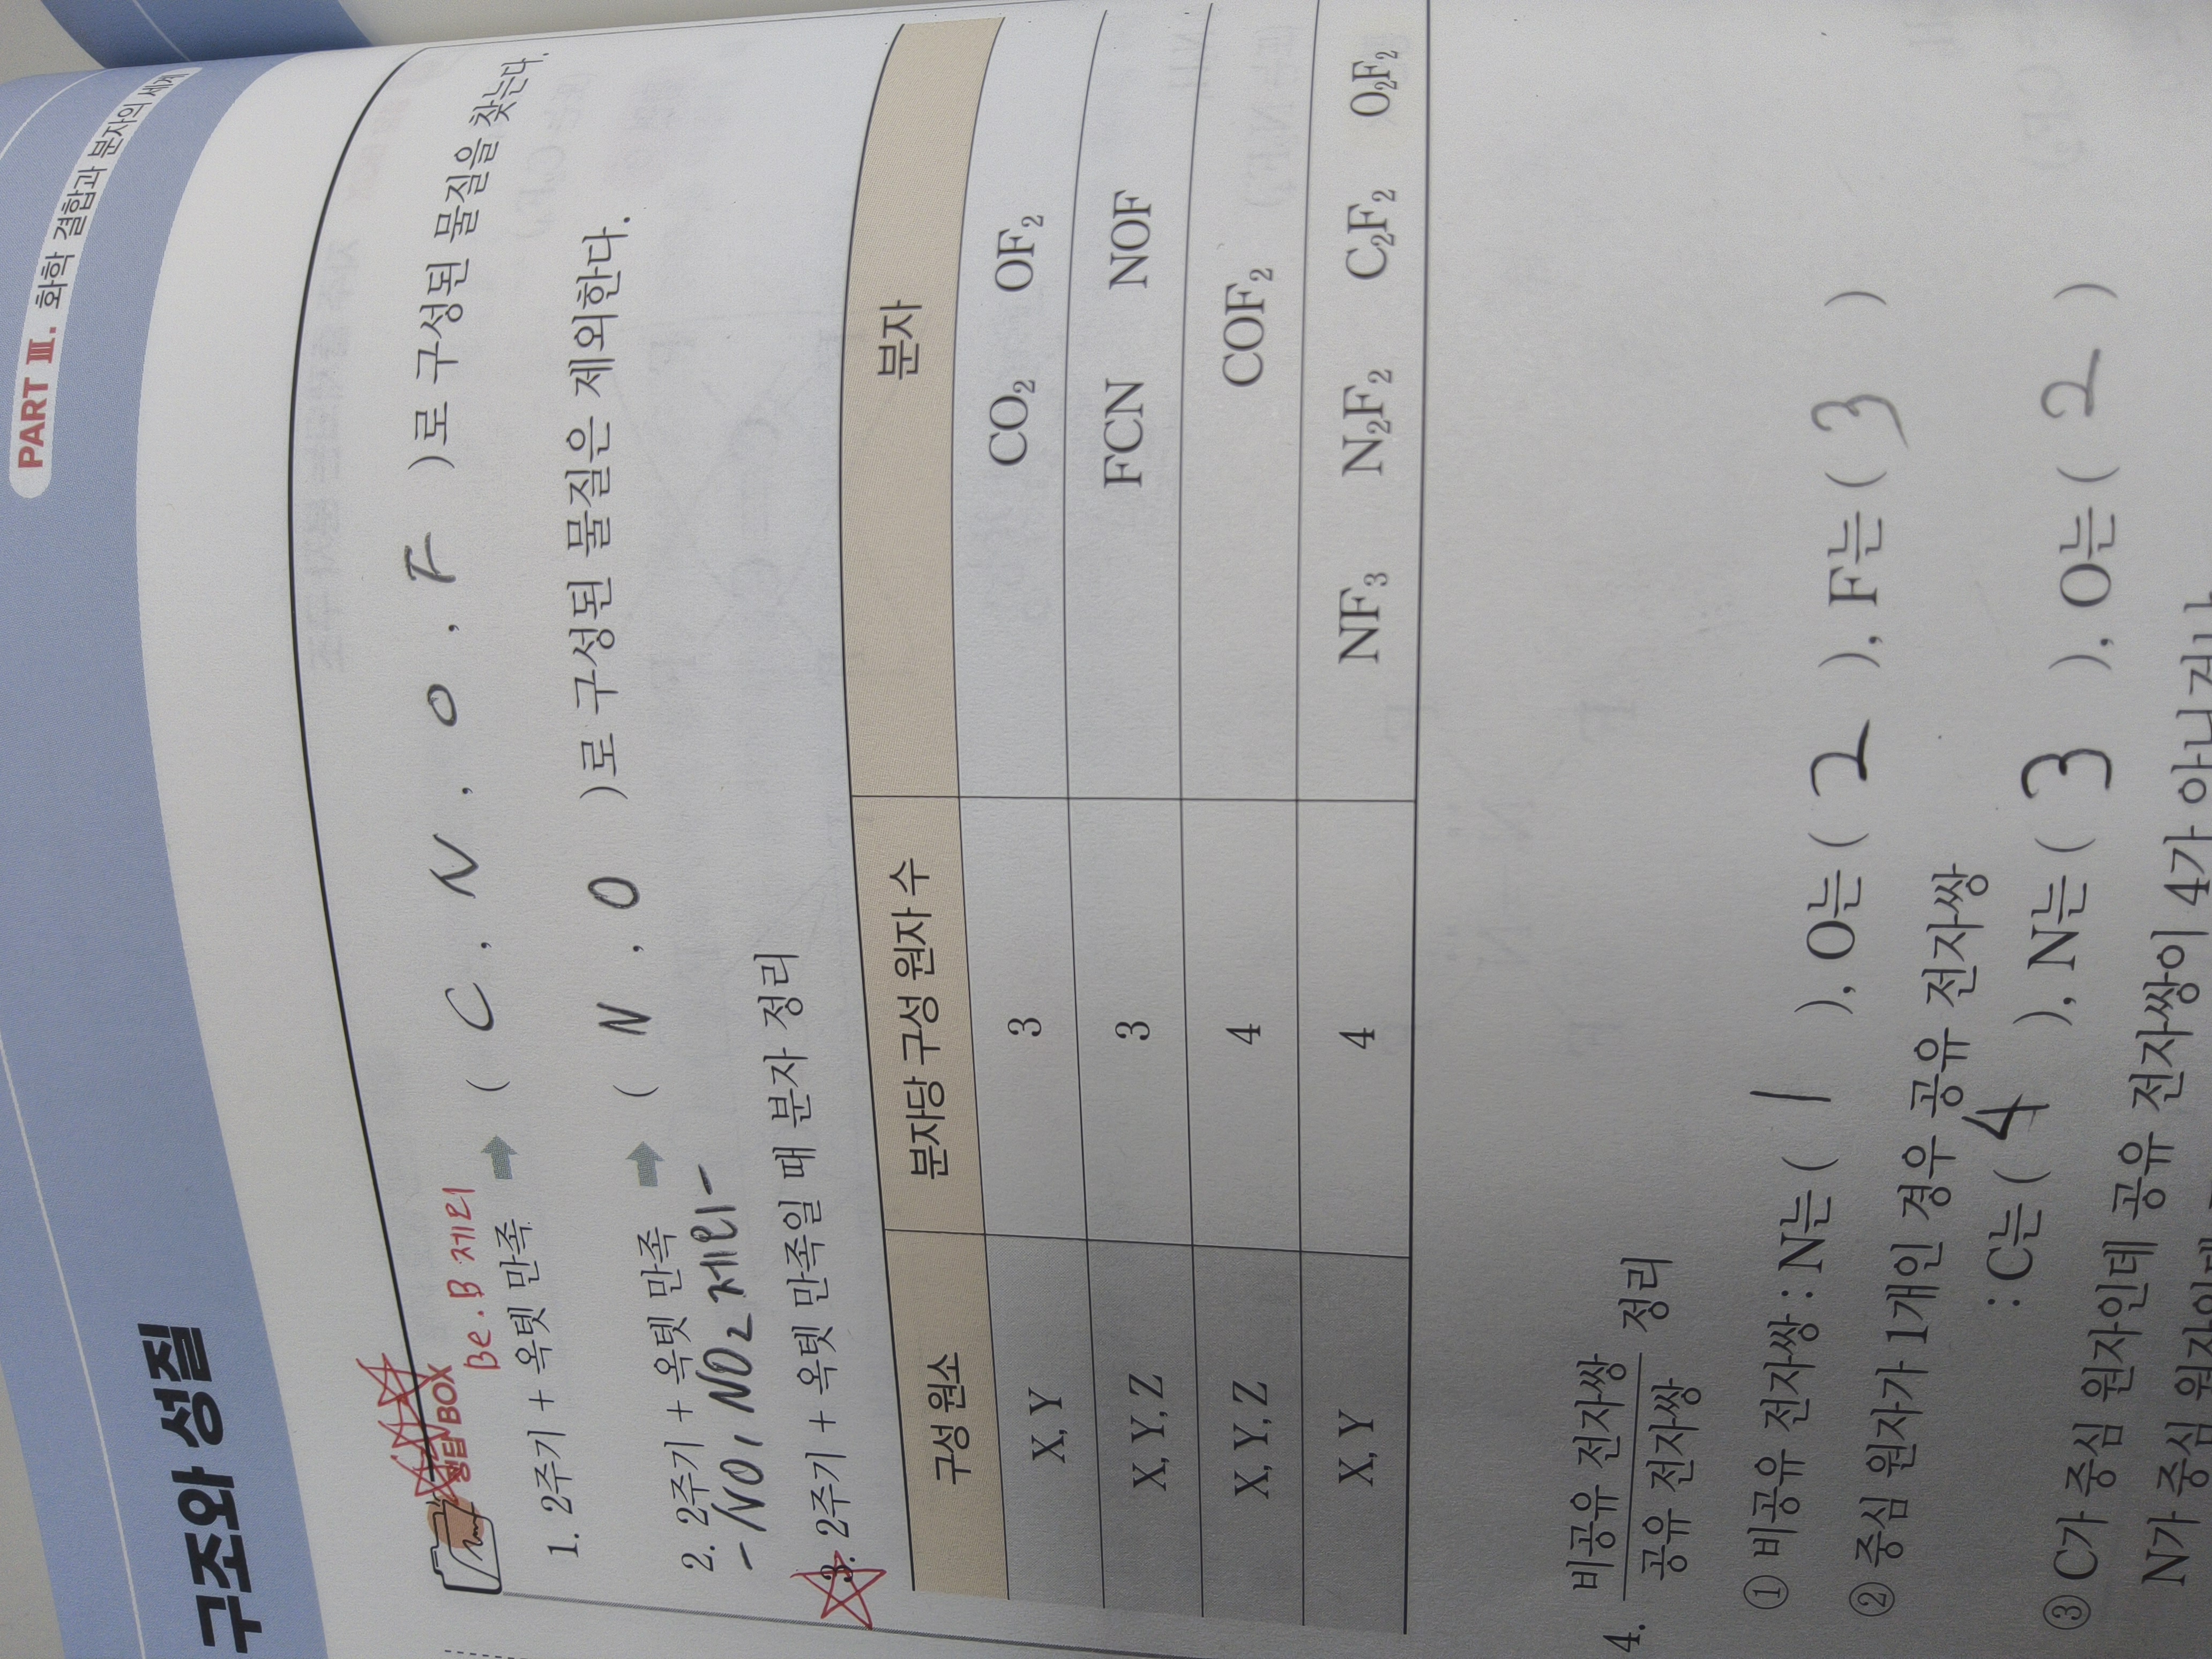 PART Ⅲ. 화학 결합과 분자의 세계
구조와 성질
정답 BOX
Be. B 제외
1. 2주기 + 옥텟 만족 ➡ ( C , N , O , F )로 구성된 물질을 찾는다.
2. 2주기 + 옥텟 만족 ➡ ( N , O )로 구성된 물질은 제외한다.
- NO, NO₂ 제외 -
3. 2주기 + 옥텟 만족일 때 분자 정리
구성 원소 분자당 구성 원자 수 분자
X, Y 3 CO₂ OF₂
X, Y, Z 3 FCN NOF
X, Y, Z 4 COF₂
X, Y 4 NF₃ N₂F₂ C₂F₂ O₂F₂
4. 비공유 전자쌍 / 공유 전자쌍 정리
① 비공유 전자쌍 : N는 ( 1 ), O는 ( 2 ), F는 ( 3 )
② 중심 원자가 1개인 경우 공유 전자쌍
: C는 ( 4 ), N는 ( 3 ), O는 ( 2 )
③ C가 중심 원자인데 공유 전자쌍이 4가 아니거나
N가 중심 원자인데